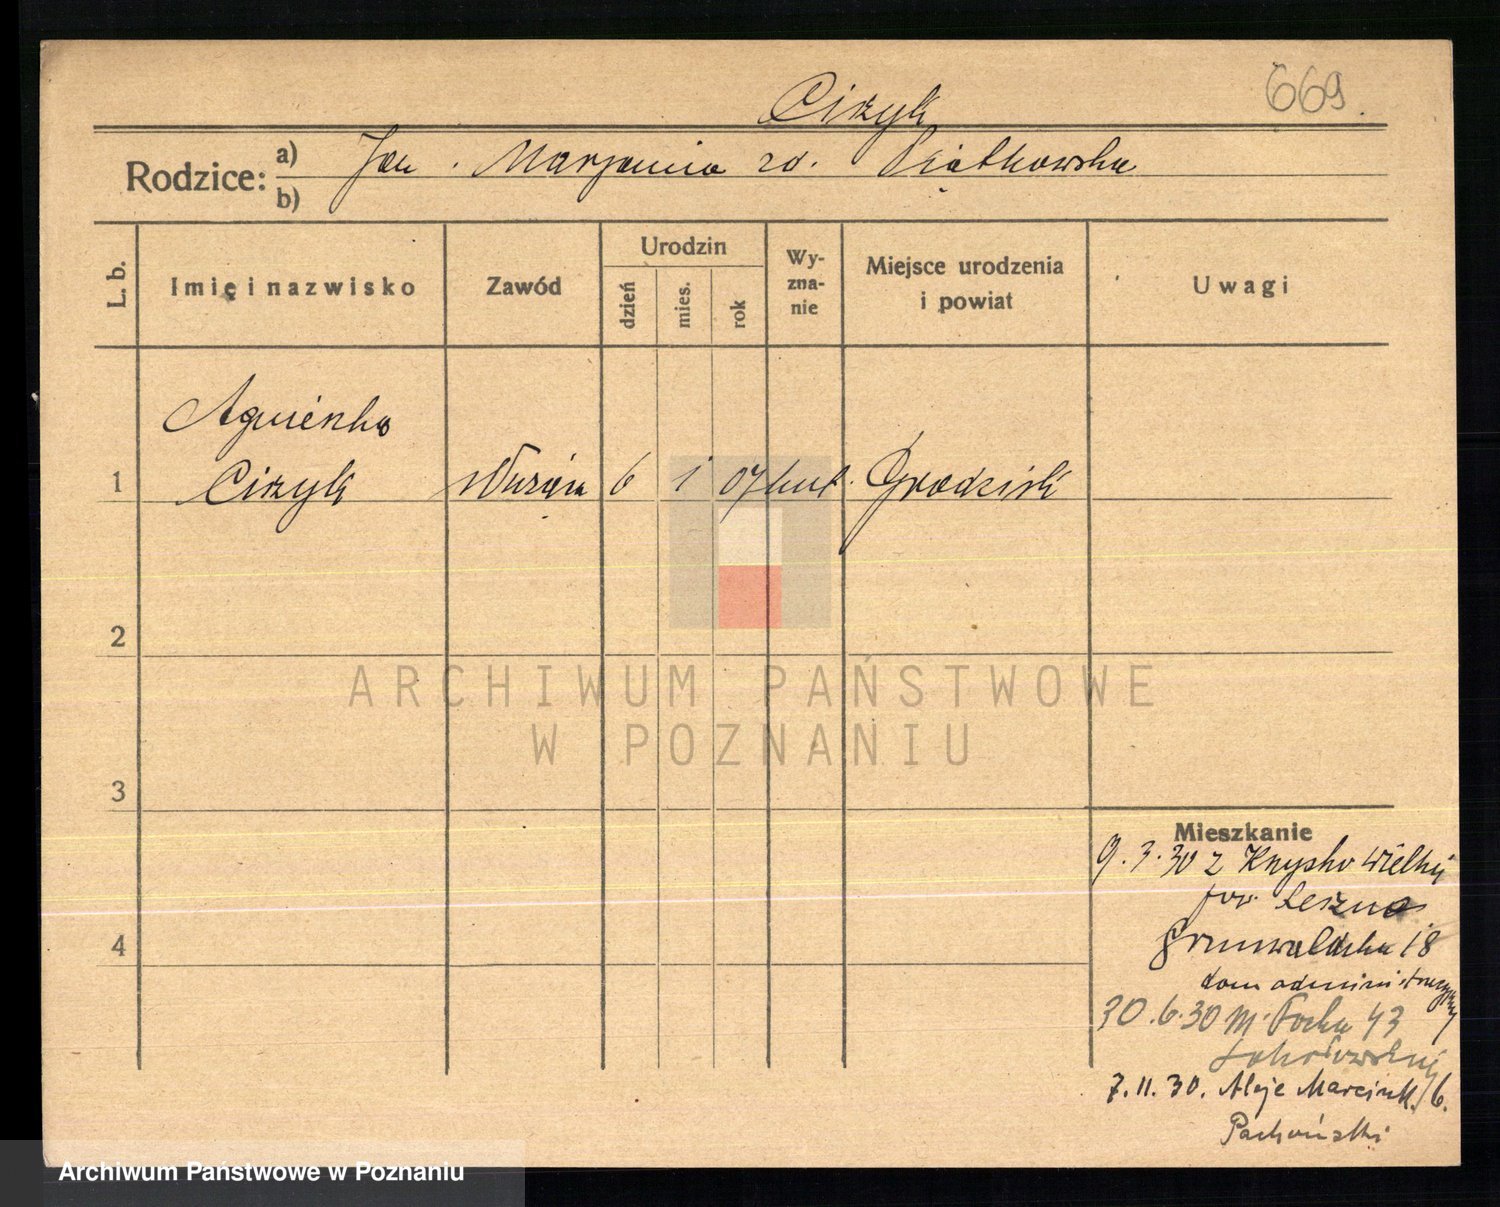 Ciżyk
669
Rodzice: a) Jan . Marjanna zd. Piątkowska
b)
L. b.
Imię i nazwisko
Zawód
Urodzin
dzień
mies.
rok
Wy-
zna-
nie
Miejsce urodzenia
i powiat
Uwagi
Agnieszka
1 Ciżyk służąca 6 1 07 kat. Grodzisk
2
ARCHIWUM PAŃSTWOWE
W POZNANIU
3
4
Mieszkanie
9.3.30 z Krzycko Wielkij
pow. Leszno
Grunwaldzka 18
dom administracyjny
30.6.30 M. Focha 43
7.11.30. Aleje Marcink. 6.
Pachoński
Archiwum Państwowe w Poznaniu